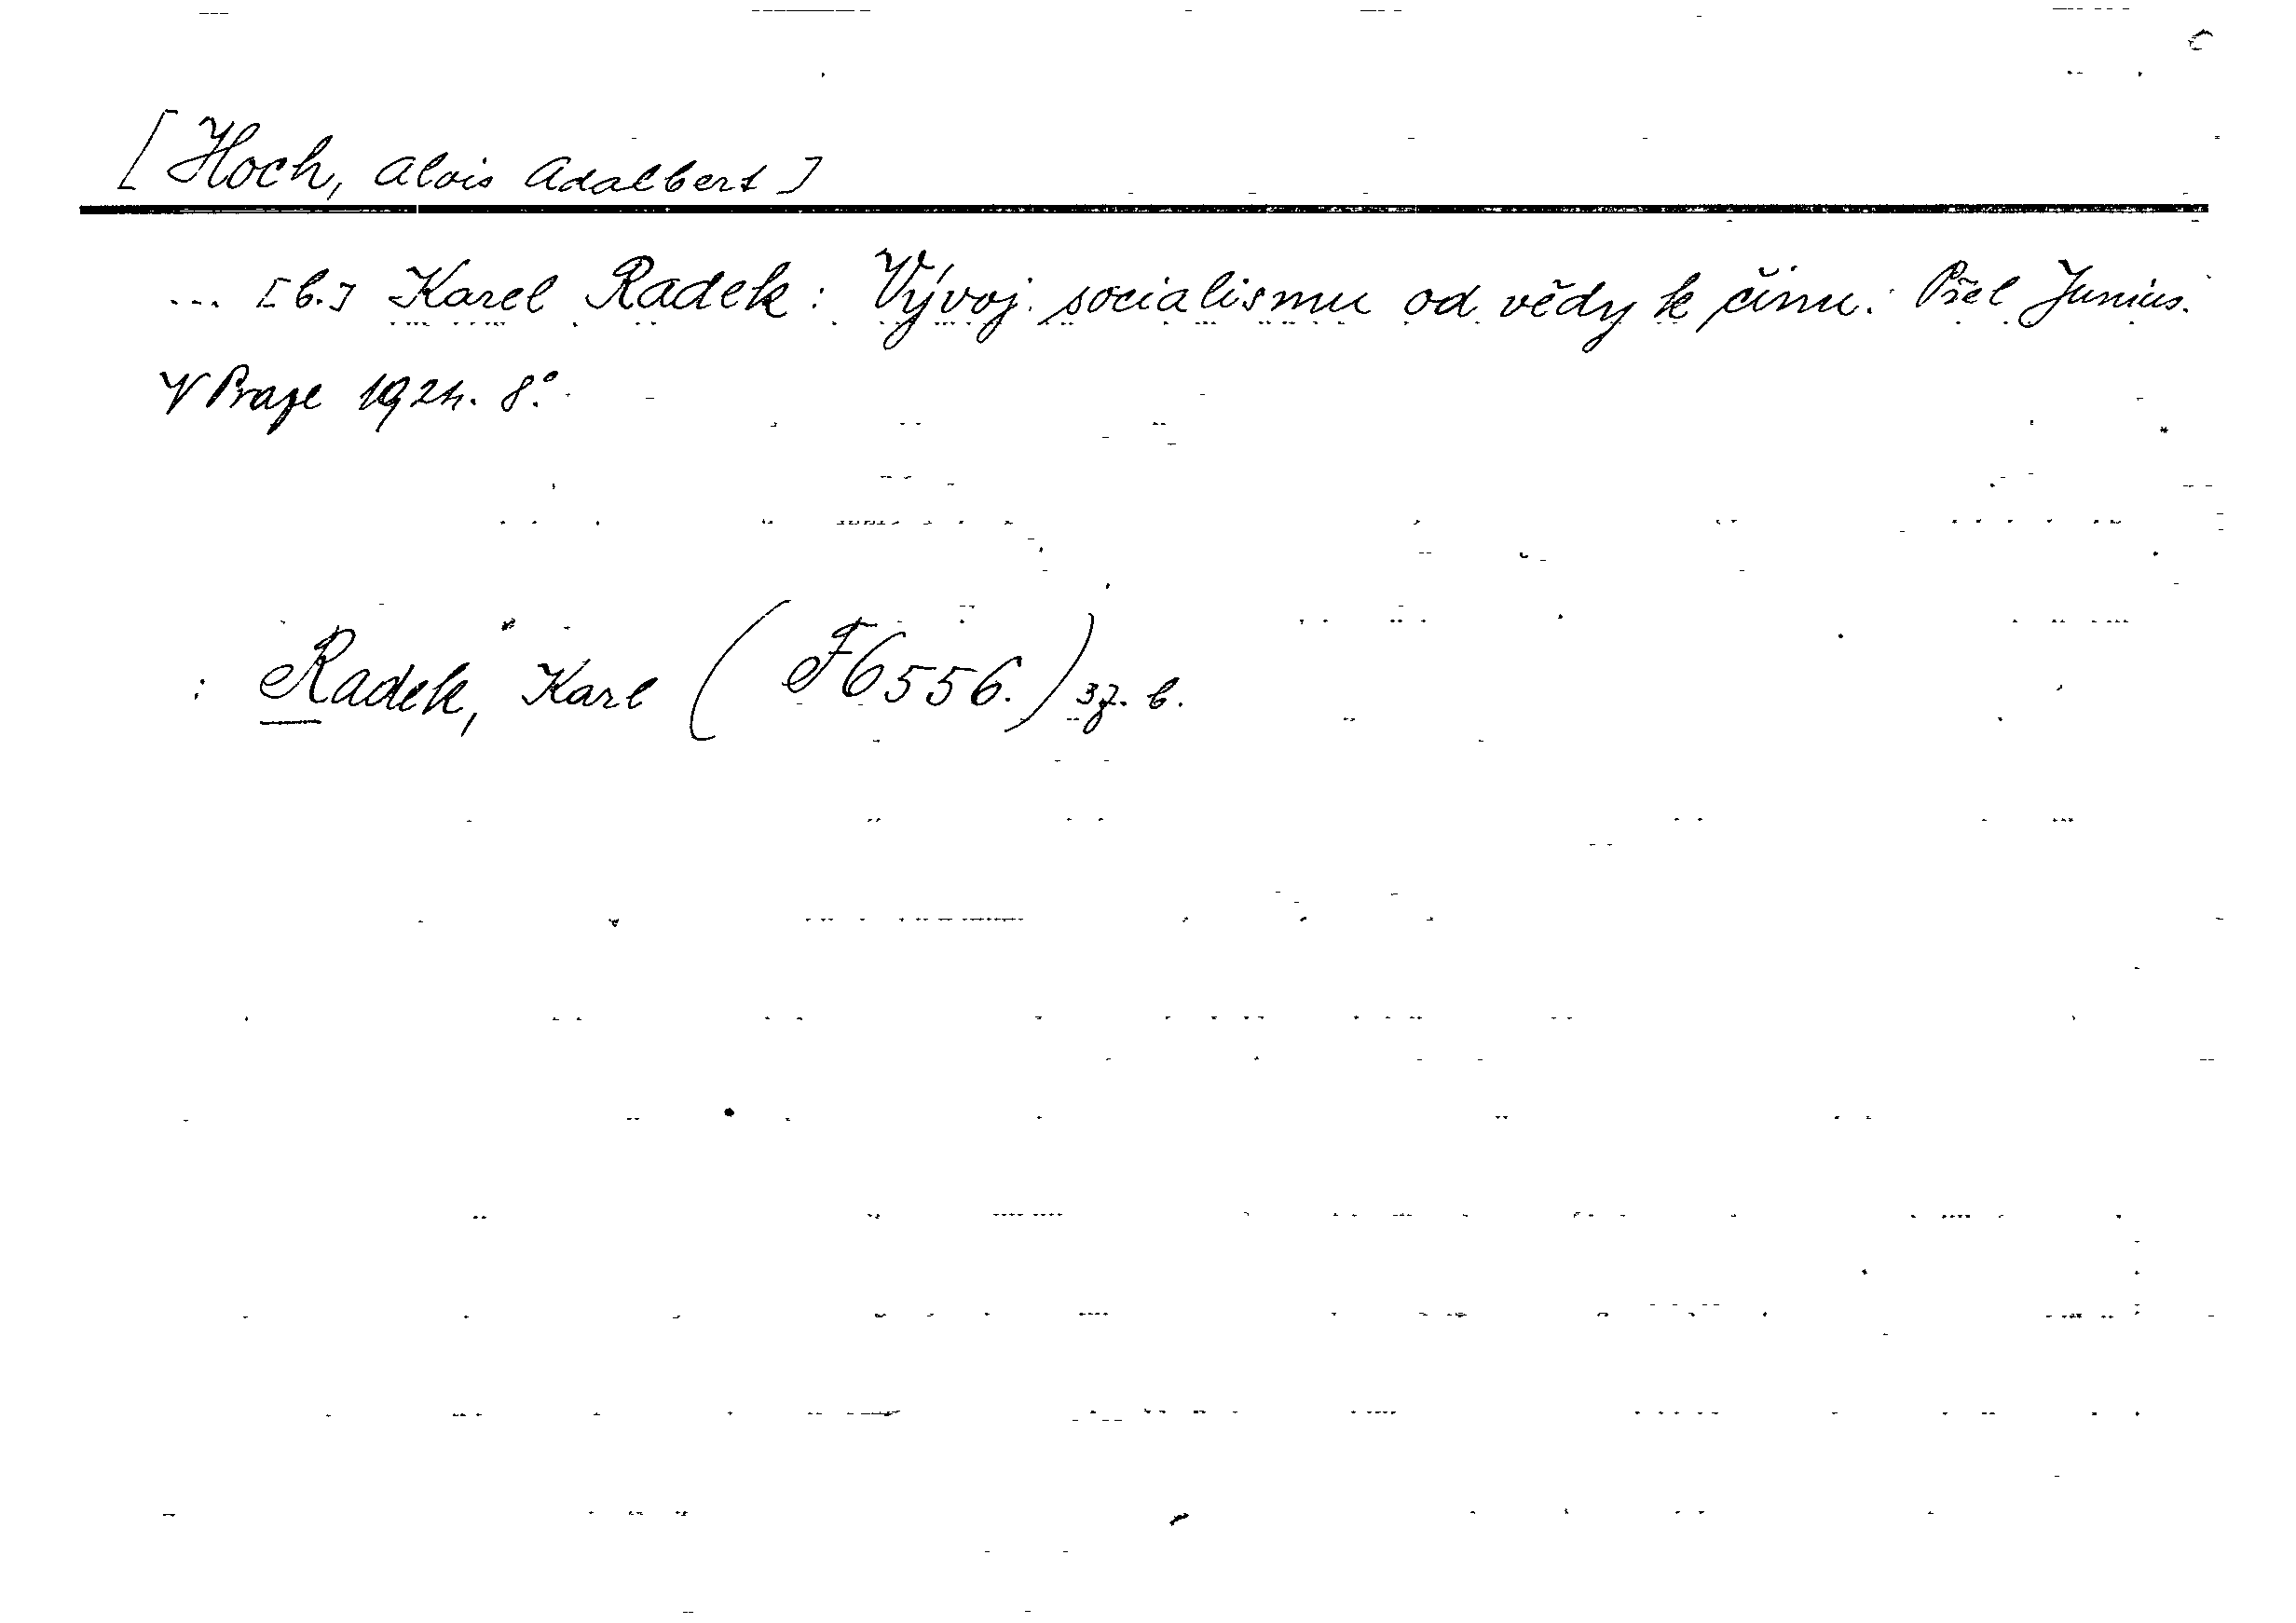 [Hoch, Alois Adalbert]
... [b.] Karel Radek: Vývoj socialismu od vědy k činu. Přel Junius.
V Praze 1921. 8°.
: Radek, Karl (F6556.) 3z. b.